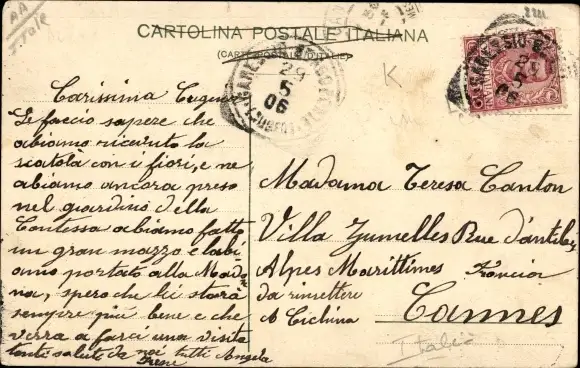 AA
T. Tale
CARTOLINA POSTALE ITALIANA
(CARTE POSTALE D'ITALIE)
29
5
06
29
5
06
K
Carissima Cugina
Le faccio sapere che
abiamo ricevuto la
scatola con i fiori, e ne
abiamo ancora preso
nel giardino della
Contessa abiamo fatto
un gran mazzo e labi
amo portato alla Mado
na, spero che lei starà
sempre più bene e che
verra a farci una visita
tanti saluti da noi tutti Angela
Madama Teresa Canton
Villa Jumelles Rue d'antibes
Alpes Marittimes Francia
da rimettere
A Cichina
Cannes